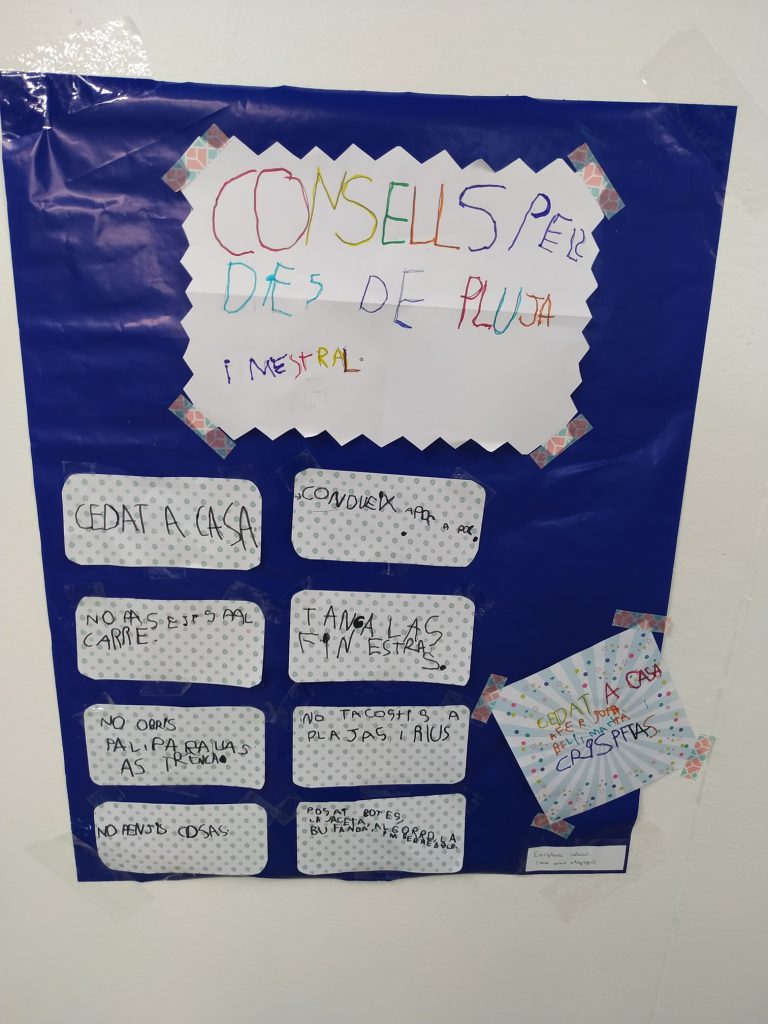 CONSELLS PER
DIES DE PLUJA
I MESTRAL.
CEDAT A CASA.
CONDUEIX APOC A POC.
NO
CARRE.
TANCA LAS
FINESTRAS.
NO OBRIS
PALIPARAUAS
AS TRENCA
NO TACOSTIS A
PLAJAS I RIUS
NO PENJIS COSAS
POSAT BOTES,
LA JAGETA,
BUFANDA, AL GORRO, LA
CEDAT A CASA
AFER JOFA
I
CRISPETAS.
Escriptura